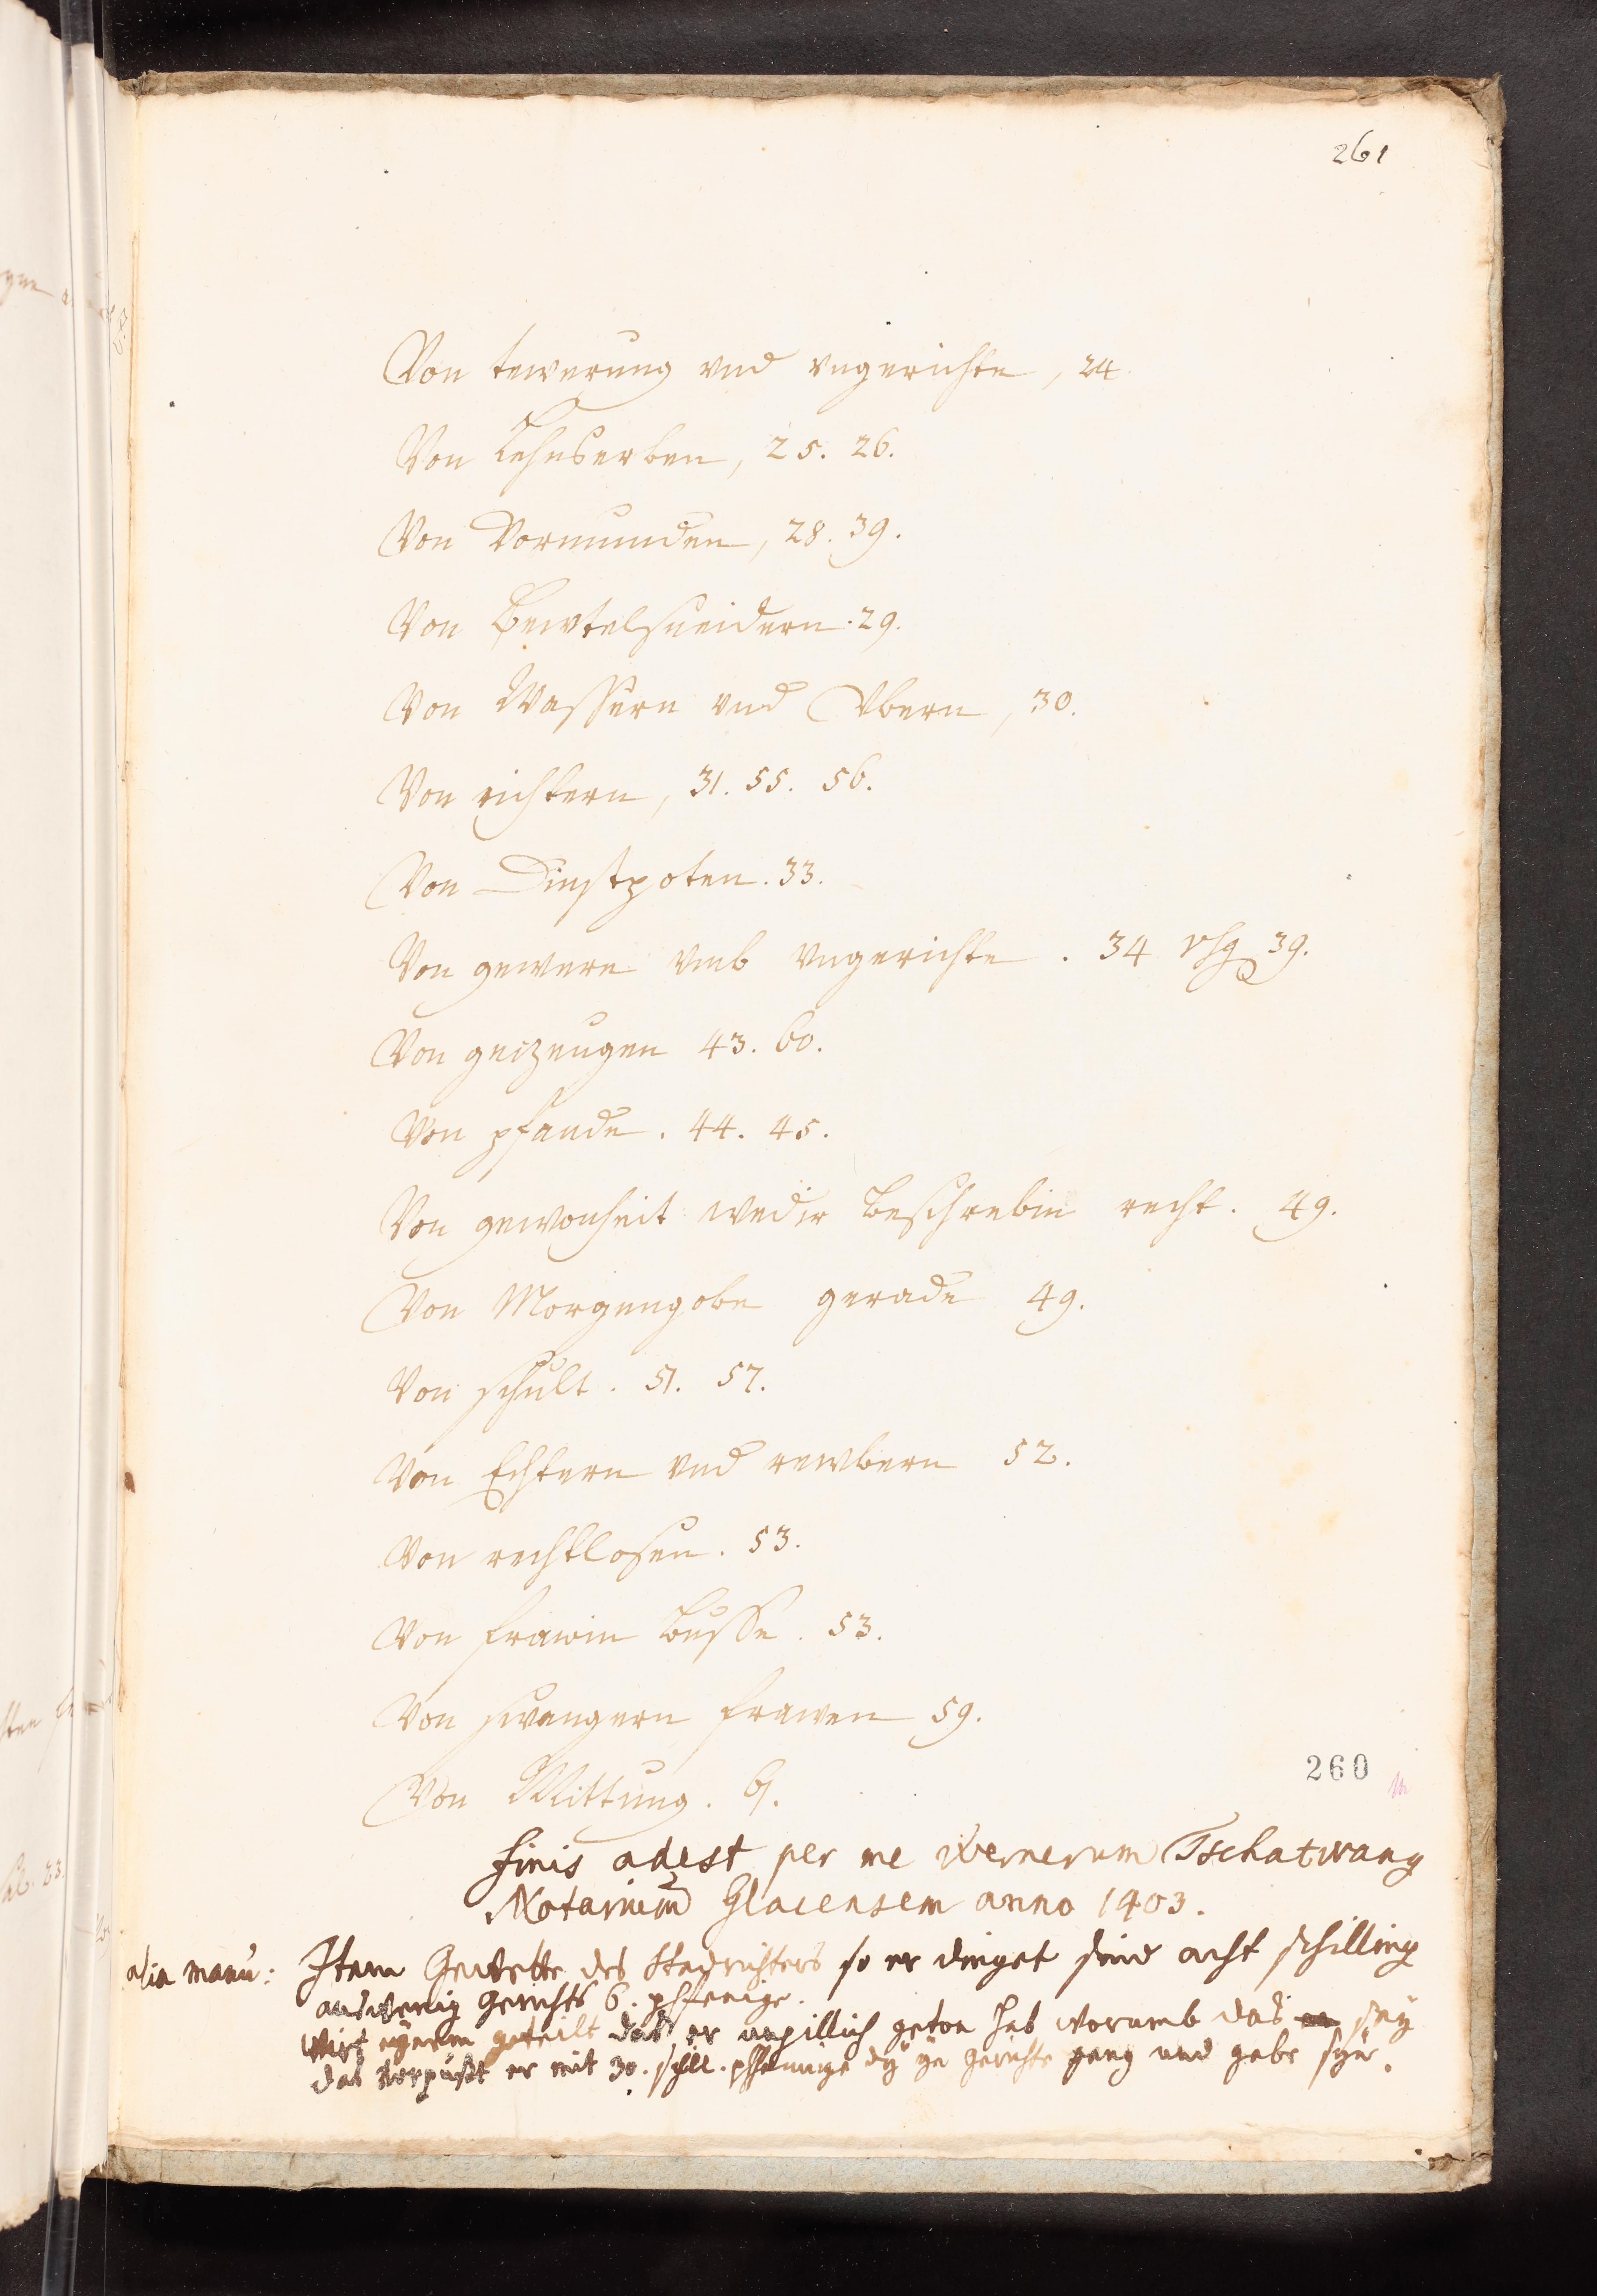 261
Von tewerung vnd vngerichte, 24.
Von Lehnserben, 25. 26.
Von Vormunden, 28. 39.
Von Bewtelsneidern. 29.
Von Wassern vnd Vbern, 30.
Von richtern, 31. 55. 56.
Von Dinstpoten. 33.
Von gewere vmb vngerichte. 34 vsq 39.
Von geczeugen 43. 60.
Von pfande. 44. 45.
Von gewonheit wedir beschrebin recht. 49.
Von Morgengobe gerade 49.
Von schult. 51. 57.
Von Echtern vnd rewbern 52.
Von rechtlosen. 53.
Von frawin busse. 53.
Von swangern frawen 59.
Von Mittung. 61.
260
finis adest per me Wernerum Tschatwang
Notarium Glacensem anno 1403.
alia manu: Item Gewette des Stadrichters so er dinget sind acht schilling
auswenig Gerichts 6. pfhenige.
Wirt eynem geteilt das er unpillich geton hab worumb das sey
das vorpüst er mit 30. schill. pfhennige dy ye gerichte geng und gebe syn.